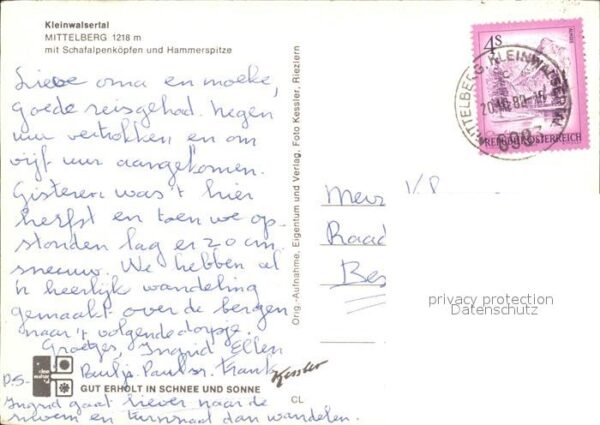 Kleinwalsertal
MITTELBERG 1218 m
mit Schafalpenköpfen und Hammerspitze
Lieve oma en moeke,
goede reis gehad. Negen
uur vertrokken en om
vijf uur aangekomen.
Gisteren was 't hier
herfst en toen we op-
stonden lag er 20 cm.
sneeuw. We hebben al
'n heerlijk wandeling
gemaakt over de bergen
naar 't volgende dorpje.
Groetjes, Ingrid Ellen
Paultje. Paul sr. Frank
GUT ERHOLT IN SCHNEE UND SONNE
P.S.
Ingrid gaat liever naar de
zwem en turnzaal dan wandelen.
Orig.-Aufnahme, Eigentum und Verlag: Foto Kessler, Riezlern
Kessler
CL
4 S
REPUBLIK ÖSTERREICH
MITTELBERG, KLEINWALSERTAL
Raad
Bes
privacy protection
Datenschutz